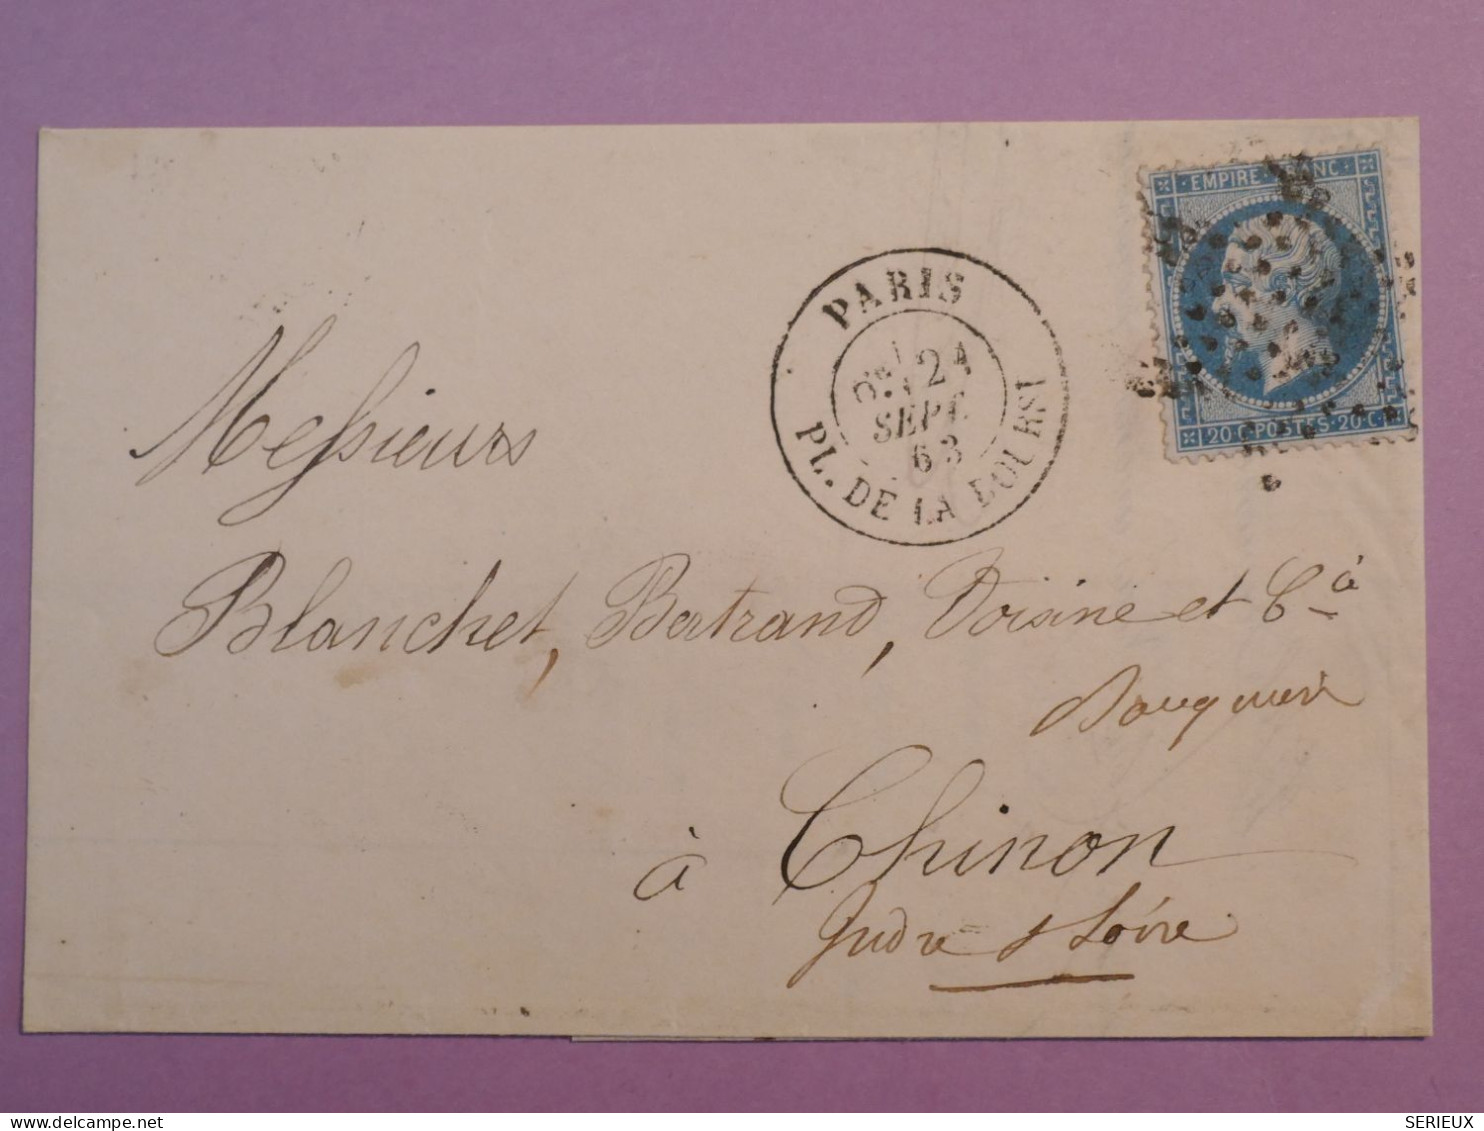 EMPIRE FRANC
20 C. POSTES 20 C.
PARIS
21
SEPT.
63
PL. DE LA BOURSE
Messieurs
Blanchet, Bertrand, Voisine et Cie à
Banquiers
à Chinon
Indre & Loire
delcampe.net
SERIEUX